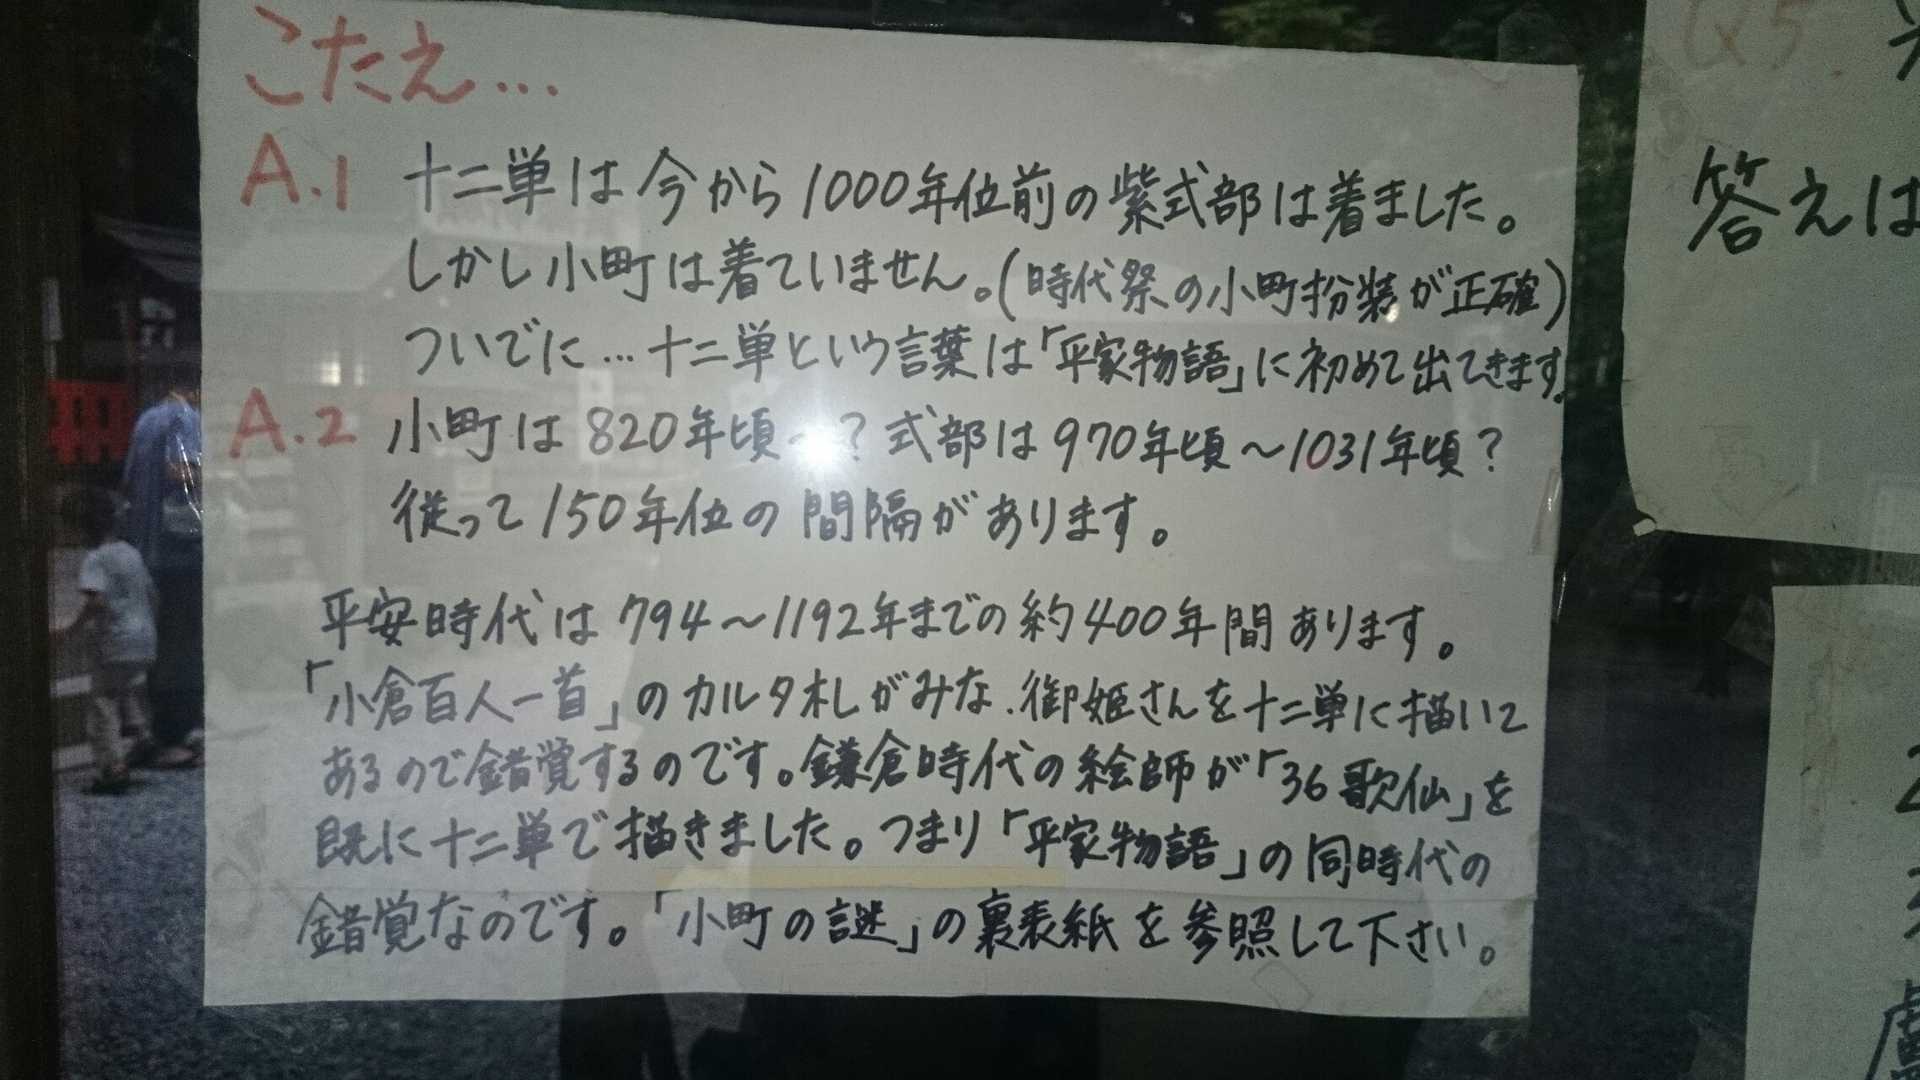 こたえ…
A.1 十二単は今から1000年位前の紫式部は着ました。
しかし小町は着ていません。(時代祭の小町扮装が正確)
ついでに…十二単という言葉は「平家物語」に初めて出てきます。
A.2 小町は820年頃〜? 式部は970年頃〜1031年頃?
従って150年位の間隔があります。
平安時代は794〜1192年までの約400年間あります。
「小倉百人一首」のカルタ札がみな、御姫さんを十二単に描いて
あるので錯覚するのです。鎌倉時代の絵師が「36歌仙」を
既に十二単で描きました。つまり「平家物語」の同時代の
錯覚なのです。「小町の謎」の裏表紙を参照して下さい。
Q5.
答えは